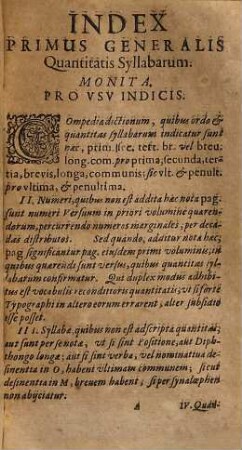 INDEX
PRIMUS GENERALIS
Quantitatis Syllabarum:
MONITA.
PRO VSV INDICIS.
COmpedia dictionum, quibus ordo &
quantitas syllabarum indicatur sunt
hæc, prim. se c. tert. br. vel breu.
long. com. pro prima, secunda, ter-
tia, brevis, longa, communis: sic vlt. & penult.
pro vltima, & penultima.
II. Numeri, quibus non est addita hæc nota pag.
sunt numeri Versuum in priori volumine quæren-
dorum, percurrendo numeros marginales, per deca-
das distributos. Sed quando, additur nota hæc;
pag significantur pag. ejusdem primi voluminis, in
quibus quærendi sunt versus, quibus quantitas syl-
labarum confirmatur. Qui duplex modus adhibi-
tus est vocabulis reconditioris quantitatis, vt si forte
Typographi in altero eorum errarent, alter subsidio
esse posset.
III. Syllabæ, quibus non est adscripta quantitas;
aut sunt per se notæ; vt si sint Positione, aut Diph-
thongo longæ: aut si sint verba, vel nominatiua de-
sinentia in O, habent vltimam communem; sicut
desinentia in M, breuem habent; si per synalæphen
non abijciatur.
A IV. Quan-